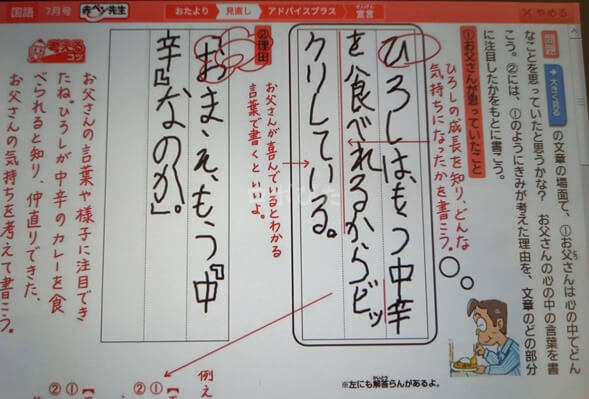 国語 7月号 赤ペン先生 おたより 見直し アドバイスプラス 宣言 × やめる
問題 →大きく見る の文章の場面で、①お父さんは心の中でどん
なことを思っていたと思うかな? お父さんの心の中の言葉を書
こう。②には、①のようにきみが考えた理由を、文章のどの部分
に注目したかをもとに書こう。
①お父さんが思っていたこと
ひろしの成長を知り、どんな
気持ちになったかを書こう。
ひろしは、もう中辛
を食べれるからビッ
クリしている。
お父さんが喜んでいるとわかる
言葉で書くといいよ。
②理由
「おまえ、もう『中
辛』なのか」。
コツ
お父さんの言葉や様子に注目でき
たね。ひろしが中辛のカレーを食
べられると知り、仲直りできた、
お父さんの気持ちを考えて書こう。
※左にも解答らんがあるよ。
例え
①
②
①
②